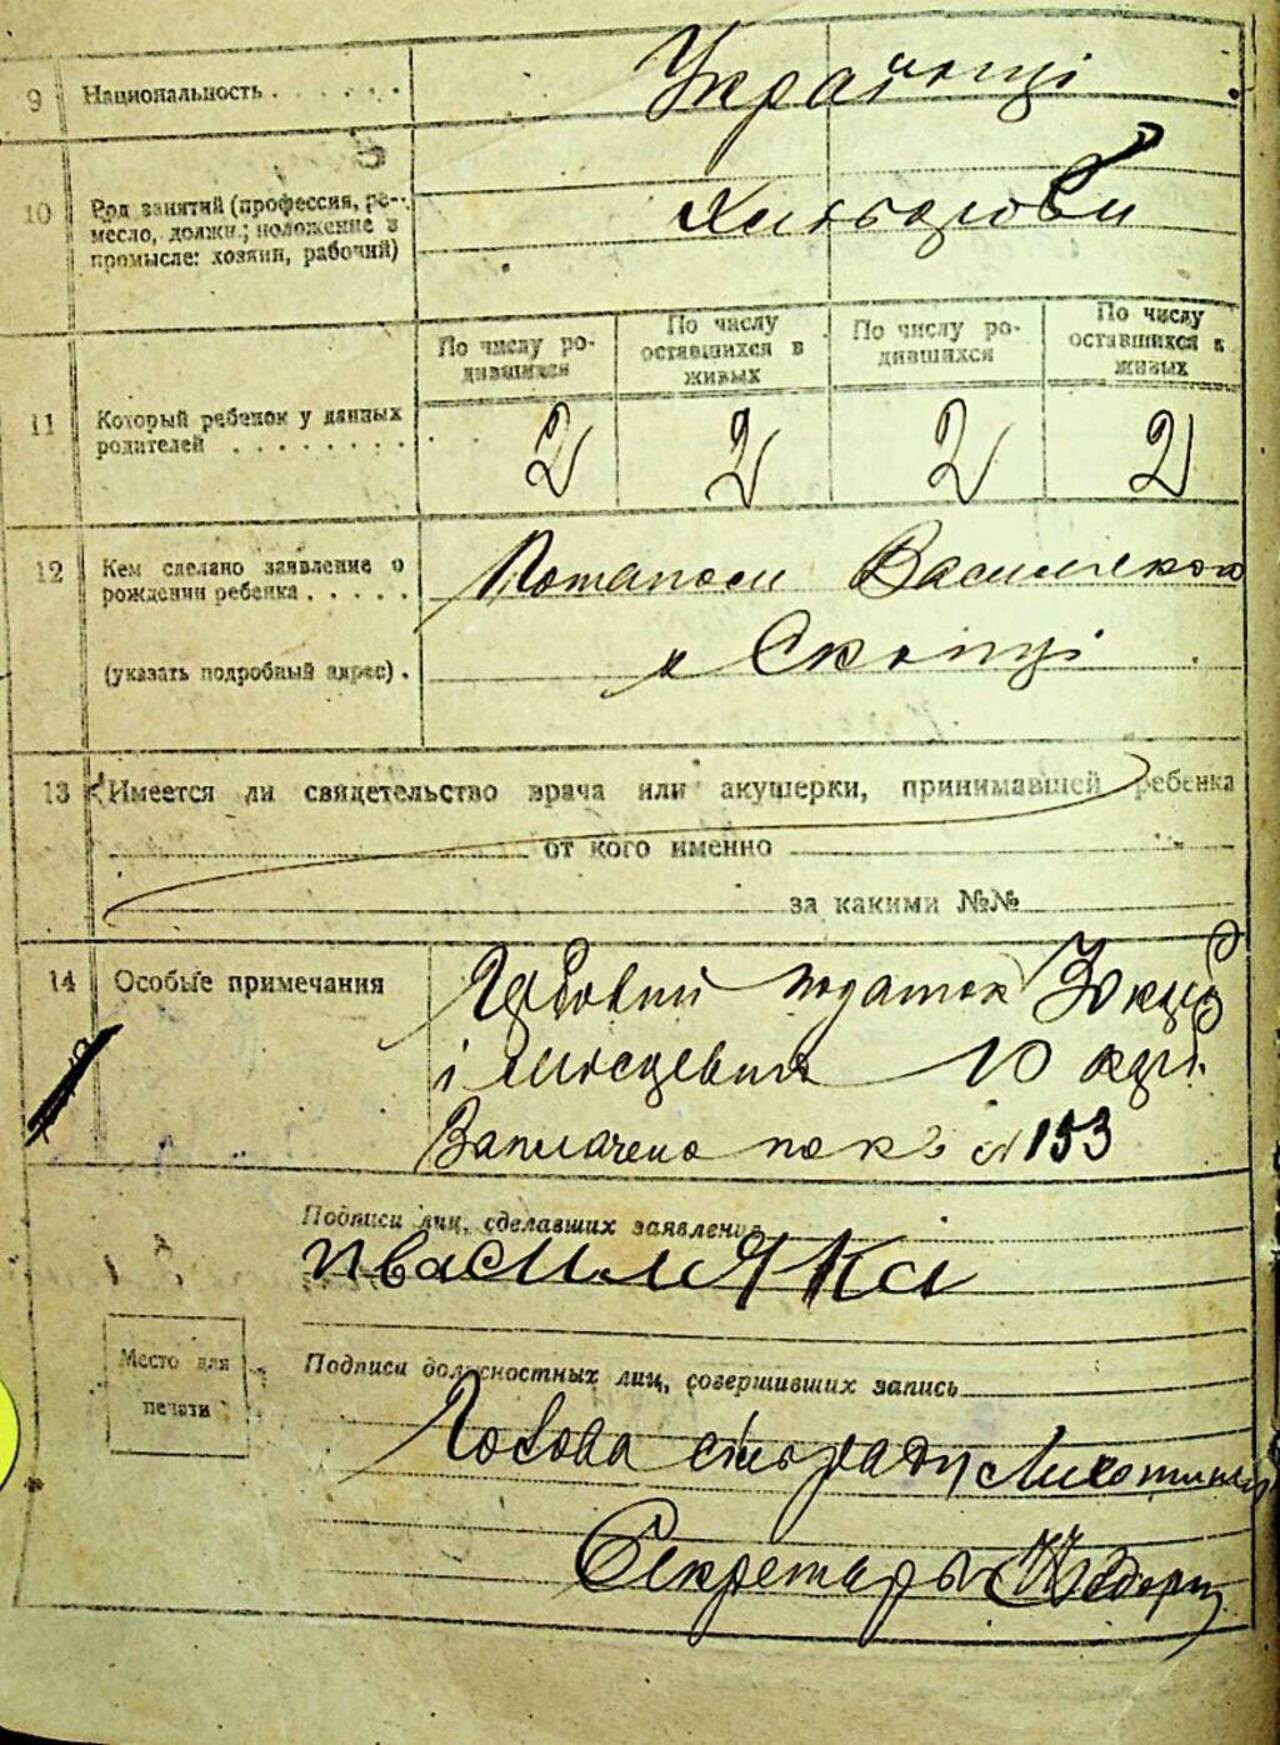 9 Национальность . . . . . .
Українці
10 Род занятий (профессия, ре-
месло, должн.; положение в
промысле: хозяин, рабочий)
Хлібороби
По числу ро-
дившихся
По числу
оставшихся в
живых
По числу ро-
дившихся
По числу
оставшихся в
живых
11 Который ребенок у данных
родителей . . . . . . . .
2 2 2 2
12 Кем сделано заявление о
рождении ребенка . . . . .
Потапом Василякою
(указать подробный адрес) .
Скопці
13 Имеется ли свидетельство врача или акушерки, принимавшей ребенка
от кого именно
за какими №№
14 Особые примечания
податок
і місцевий 10
Заплачено № 153
Подписи лиц, сделавших заявление
п василяка
Место для
печати
Подписи должностных лиц, совершивших запись
Голова сільради
Секретарь